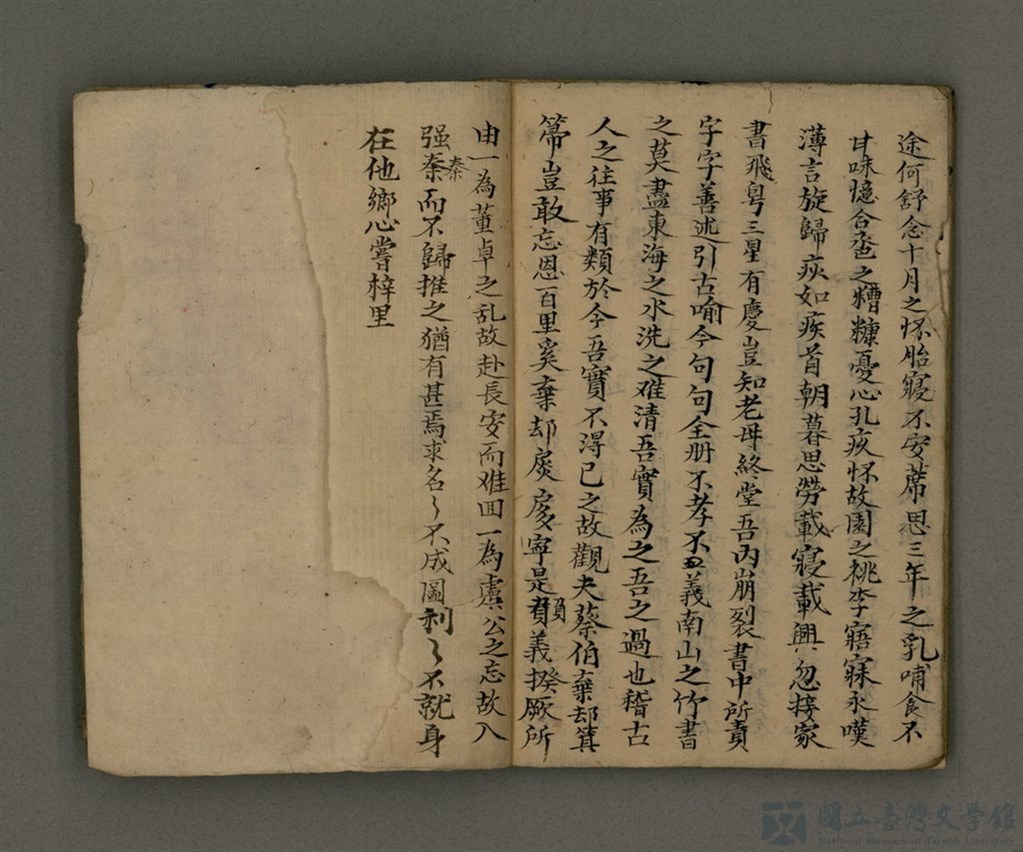 途何舒念十月之怀胎寢不安蓆思三年之乳哺食不
甘味憶合卺之糟糠憂心孔疚怀故園之桃李寤寐永嘆
薄言旋歸疢如疾首朝暮思勞載寢載興忽接家
書飛粤三星有慶豈知老母終堂吾內崩裂書中所責
字字善述引古喻今句句全册不孝不義南山之竹書
之莫盡東海之水洗之难清吾實為之吾之過也稽古
人之往事有類於今吾實不得已之故觀夫蔡伯棄却箕
箒豈敢忘恩百里奚棄却扊扅寧是負義揆厥所
由一為董卓之乱故赴長安而难回一為虞公之忘故入
强秦而不歸推之猶有甚焉求名々不成圖利々不就身
秦
在他鄉心嘗梓里
國立臺灣文學館
National Museum of Taiwan Literature